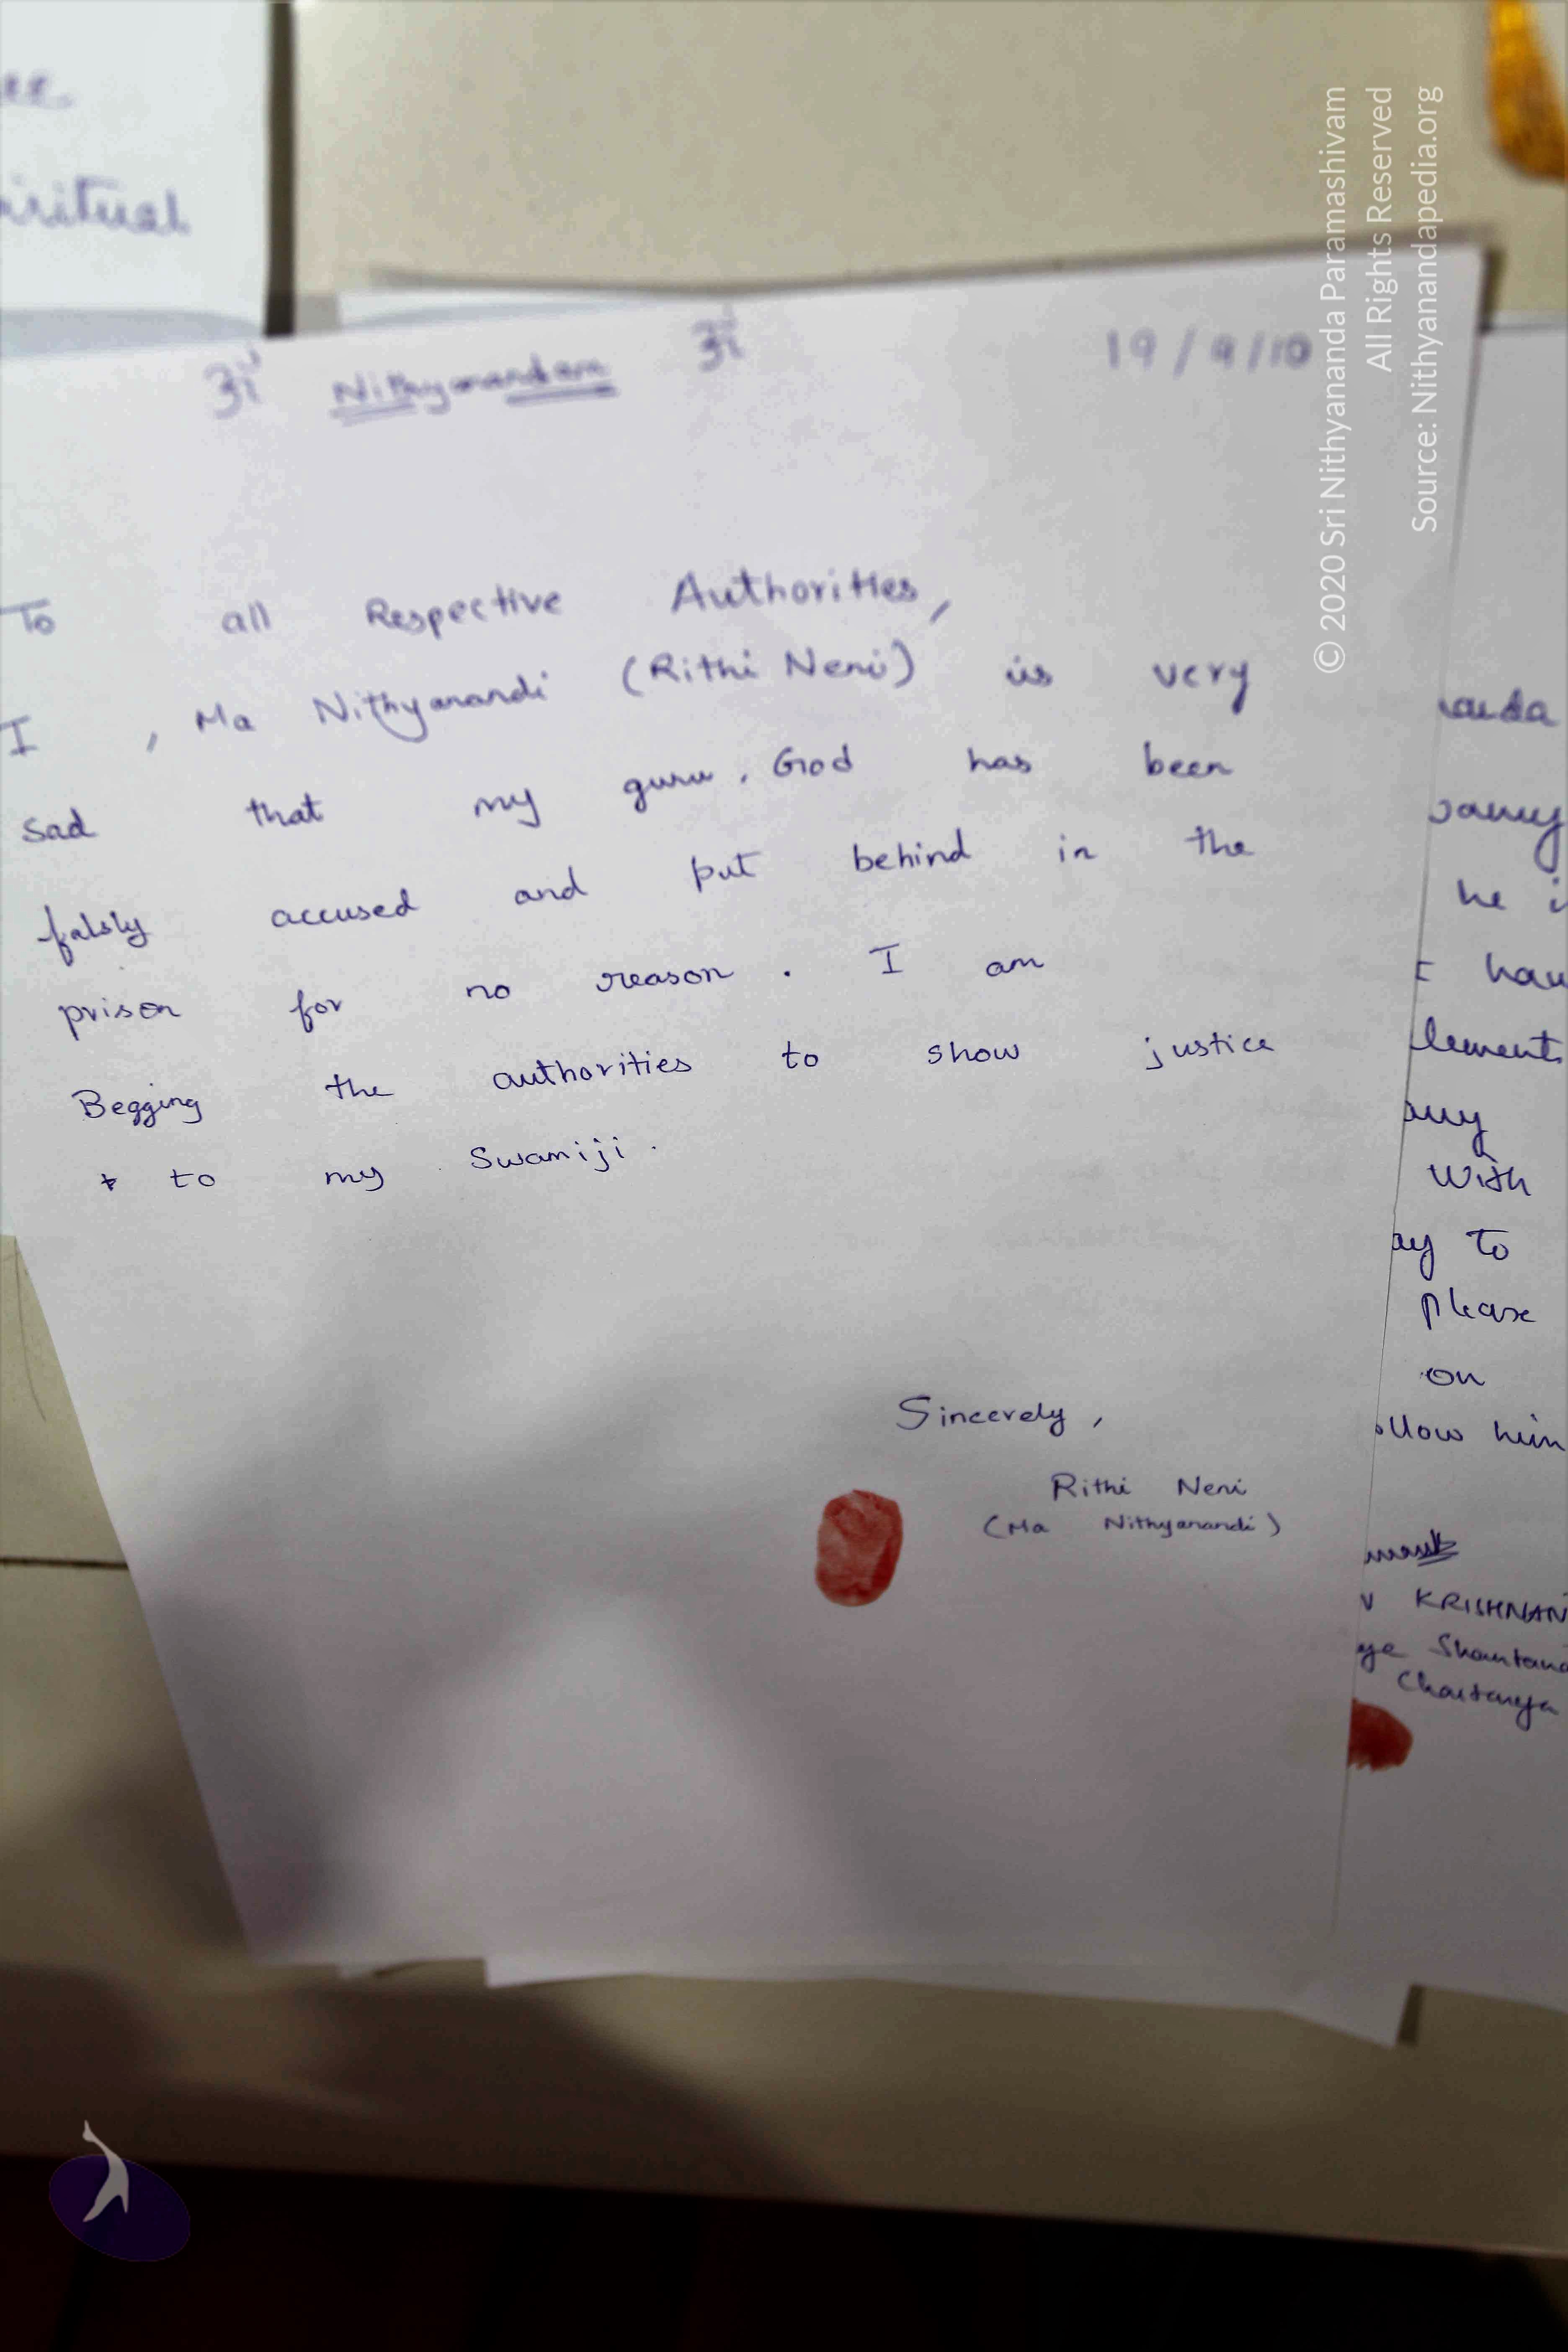 ee
iritual
ॐ Nithyanandam ॐ 19/9/10
To all Respective Authorities,
I, Ma Nithyanandi (Rithi Neni) is very
sad that my guru, God has been
falsly accused and put behind in the
prison for no reason. I am
Begging the authorities to show justice
to my Swamiji.
Sincerely,
Rithi Neni
(Ma Nithyanandi)
anda
he i
I hav
lements
any
with
ay to
please
on
ollow him
KRISHNAN
Shantana
Chaitanya
© 2020 Sri Nithyananda Paramashivam
All Rights Reserved
Source: Nithyanandapedia.org